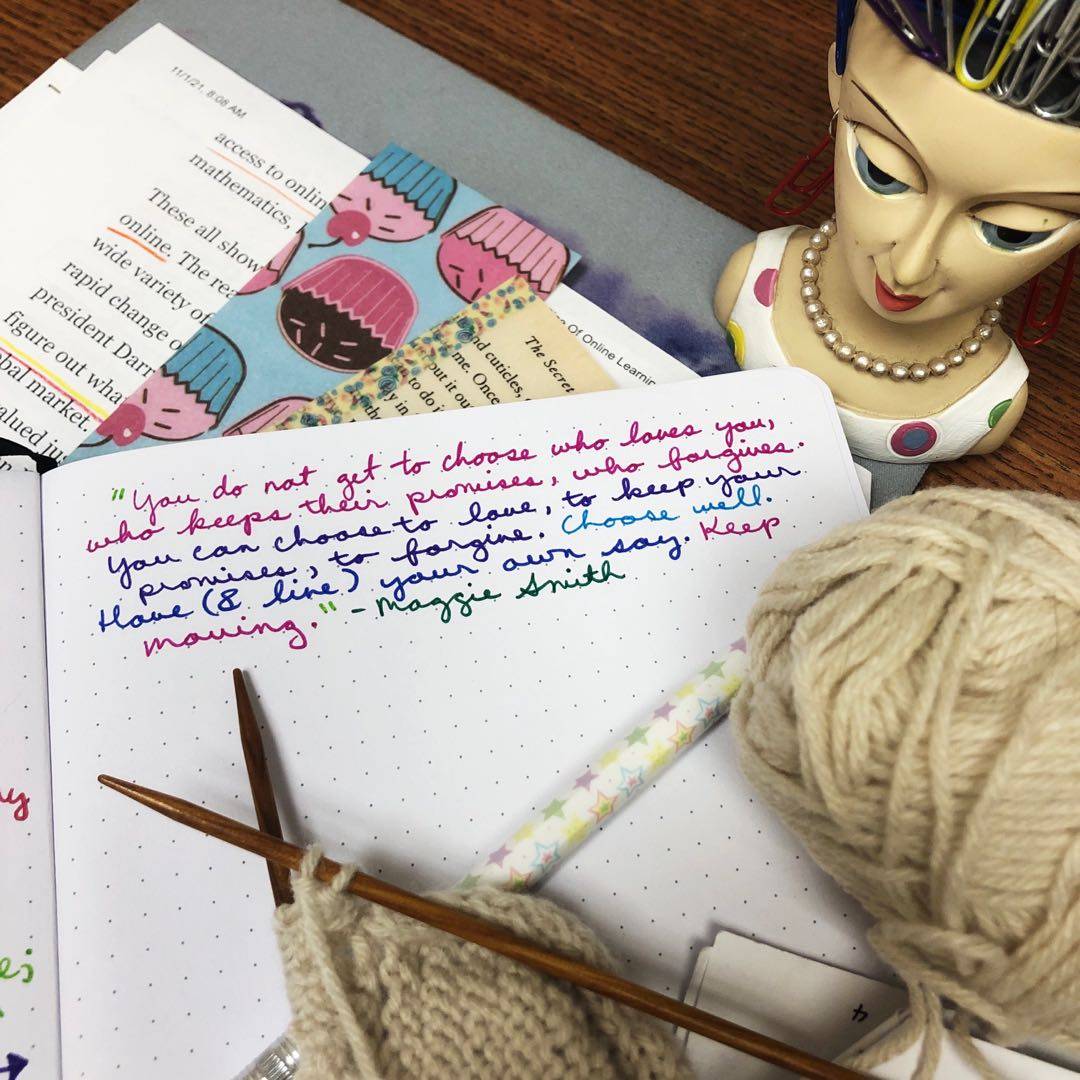 11/1/21, 8:08 AM
access to onlin
mathematics,
These all show
online. The rea
wide variety of
rapid change o
president Darr
figure out wha
obal market.
alued jus
The Secret
nd cuticles,
me. Once
out it ou
s to do i
ay in
of Online Learnin
"You do not get to choose who loves you,
who keeps their promises, who forgives.
You can choose to love, to keep your
promises, to forgive. Choose well.
Have (& live) your own say. Keep
moving." - Maggie Smith
ay
e;
4